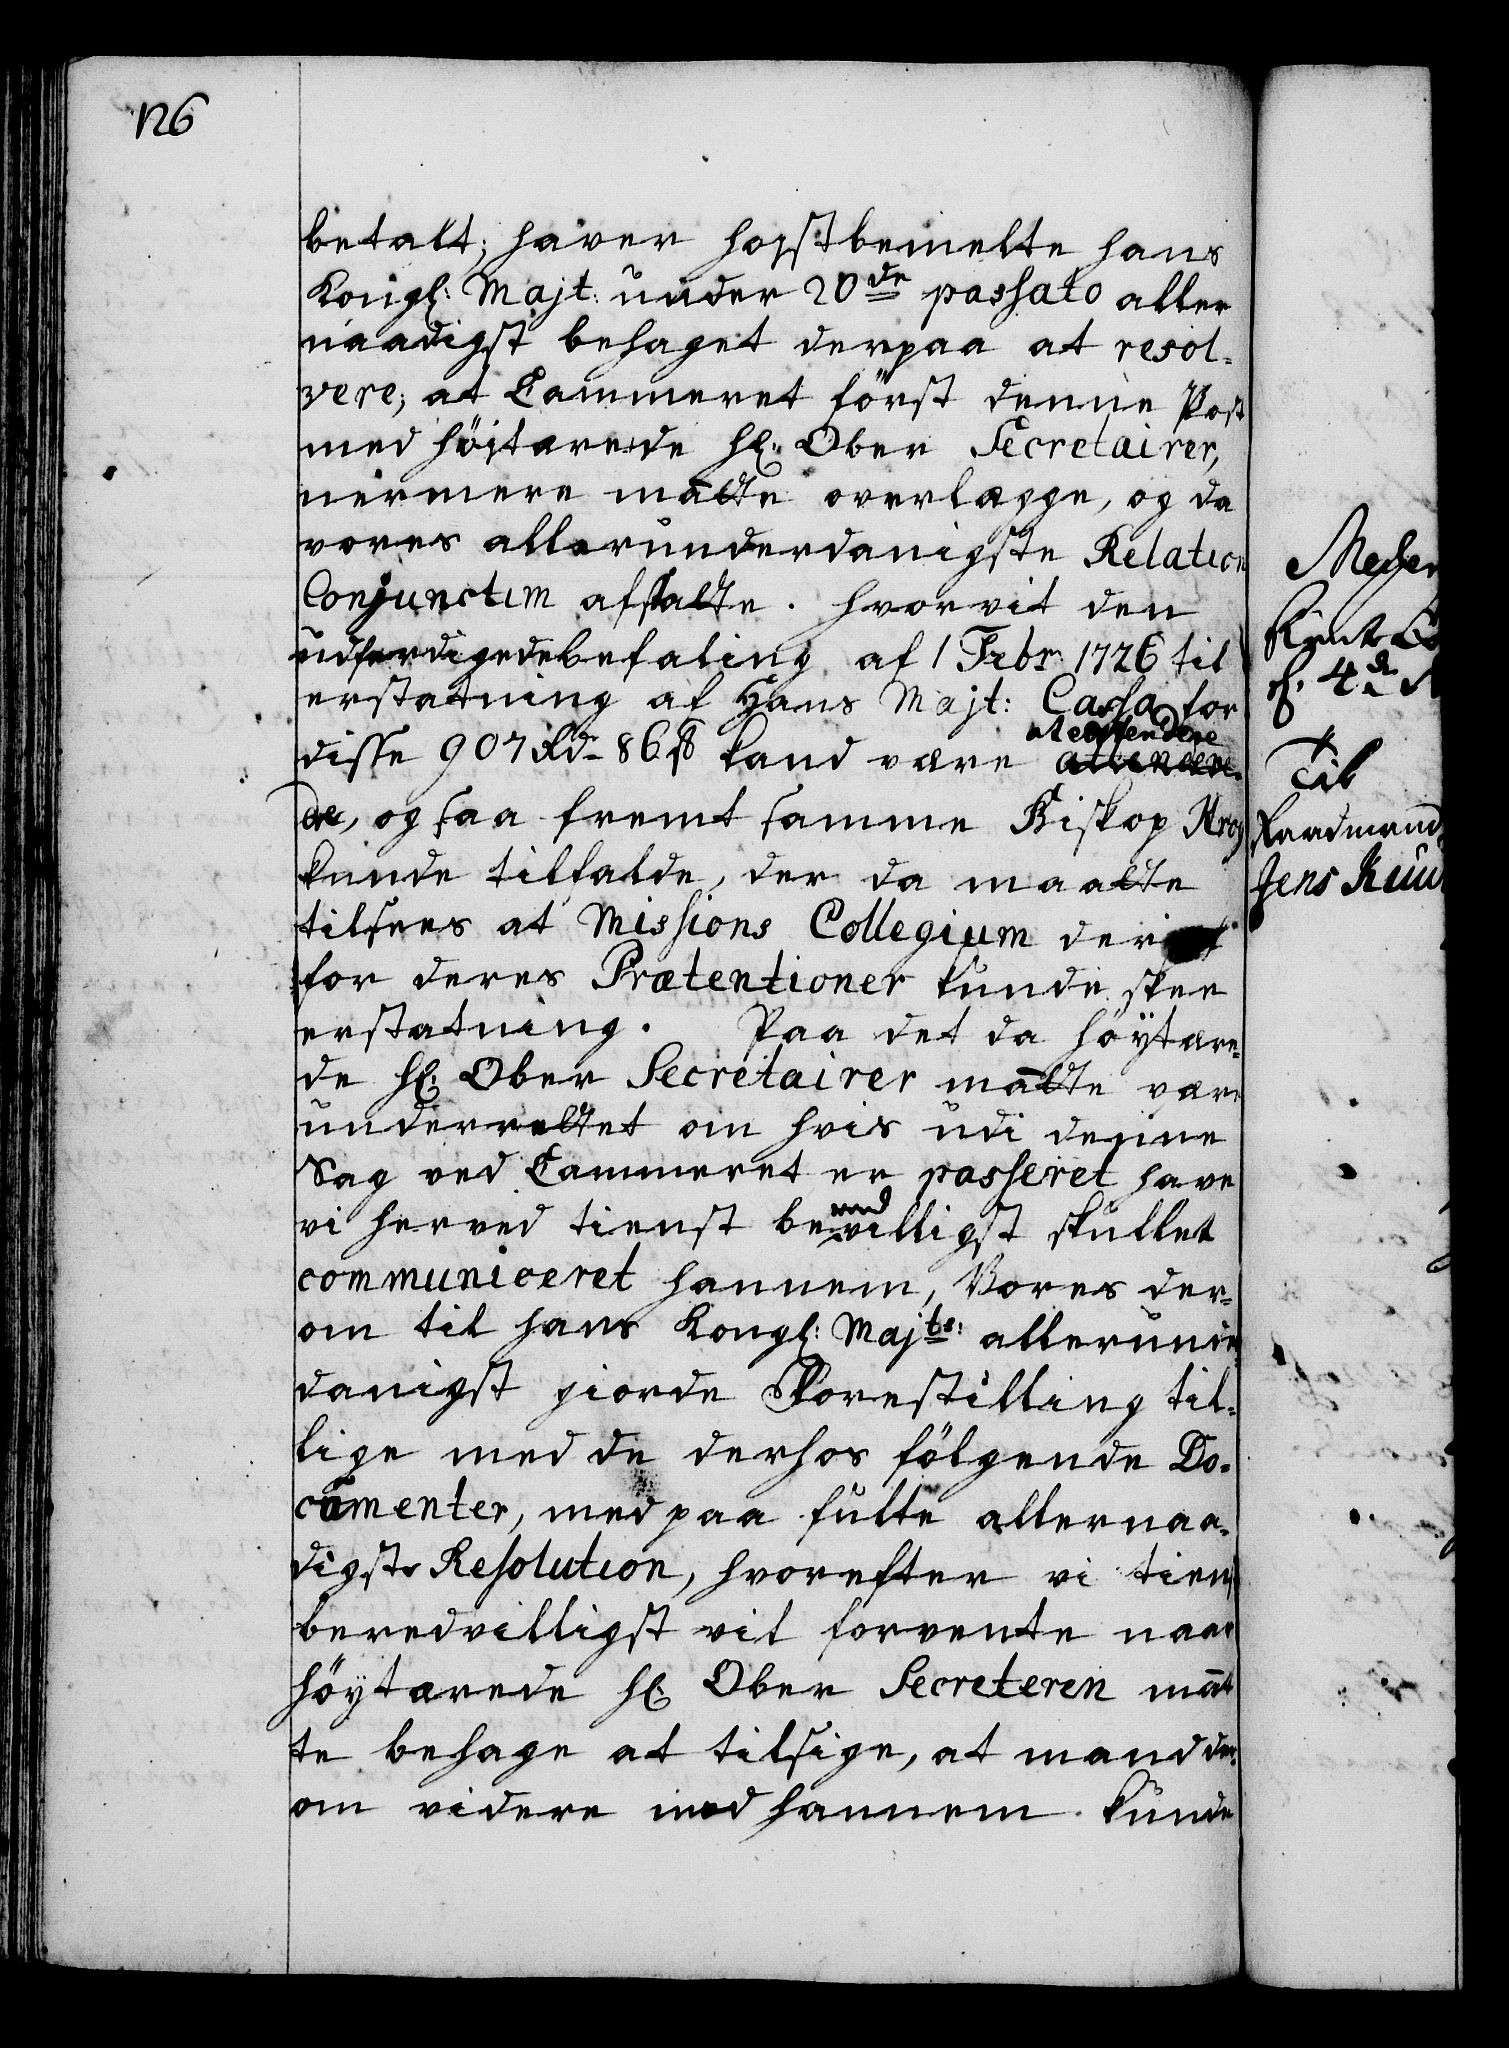 126
betalt; haver høystbemelte hans
Kongl: Majt: under 20de passato aller
naadigst behaget derpaa at resol-
vere, at Cammeret först denne Post
med höjtærede Hl: Ober Secretairer,
nermere måtte overlægge, og da
vores allerunderdanigste Relation
Conjunctim afstatte. hvorvit den
udferdigede befaling af 1 Febr 1726 til
erstatning af Hans Majt: Cassa for
disse 907 Rdr 86 ß kand være
at extendere
og saa fremt samme Biskop Krog
kunde tilfalde, der da maatte
tilsees at Missions Collegium der
for deres Prætentioner kunde skee
erstatning. Paa det da höÿtære-
de Hl: Ober Secretairer måtte være
underrettet om hvis udi denne
Sag ved Cammeret er passeret have
vi herved tienst beredvilligst skullet
communiceret hannem, Vores der-
om til hans Kongl: Majts: allerunder
danigst giorde Forestilling til-
lige med de derhos fölgende Do-
cumenter, med paa fulte allernaa-
digste Resolution, hvorefter vi tienst
beredvilligst vil forvente naar
höÿtærede Hl: Ober Secreteren måt
te behage at tilsige, at mand der-
om videre med hannem kunde
Til
Raadmand
Jens